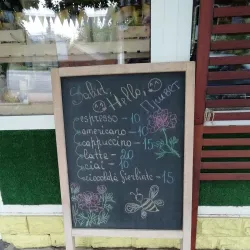 Salut,
Hello,
Привет
espresso - 10
americano - 10
cappuccino - 15
latte - 20
ceai - 10
ciocoldă fierbinte - 15